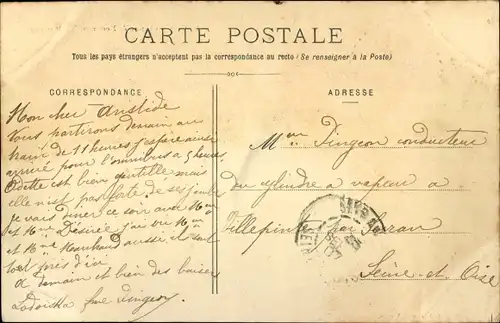 CARTE POSTALE
Tous les pays étrangers n'acceptent pas la correspondance au recto (Se renseigner à la Poste)
CORRESPONDANCE
Mon cher Aristide
Nous partirons demain au
train de 11 heures j'espère ainsi
arrivé pour l'omnibus a 5 heures
Odette est bien gentille mais
elle n'est pas forte de ses
je vais diner ce soir avec Mme
et Mme Désirée j'ai vu Mr
et Mme Marchand aussi il sont
tout près d'ici
A demain et bien des baisers
Lodoiska
ADRESSE
Mr Fingeon conducteur
du cylindre a vapeur a
Villepinte par Sevran
Seine et Oise